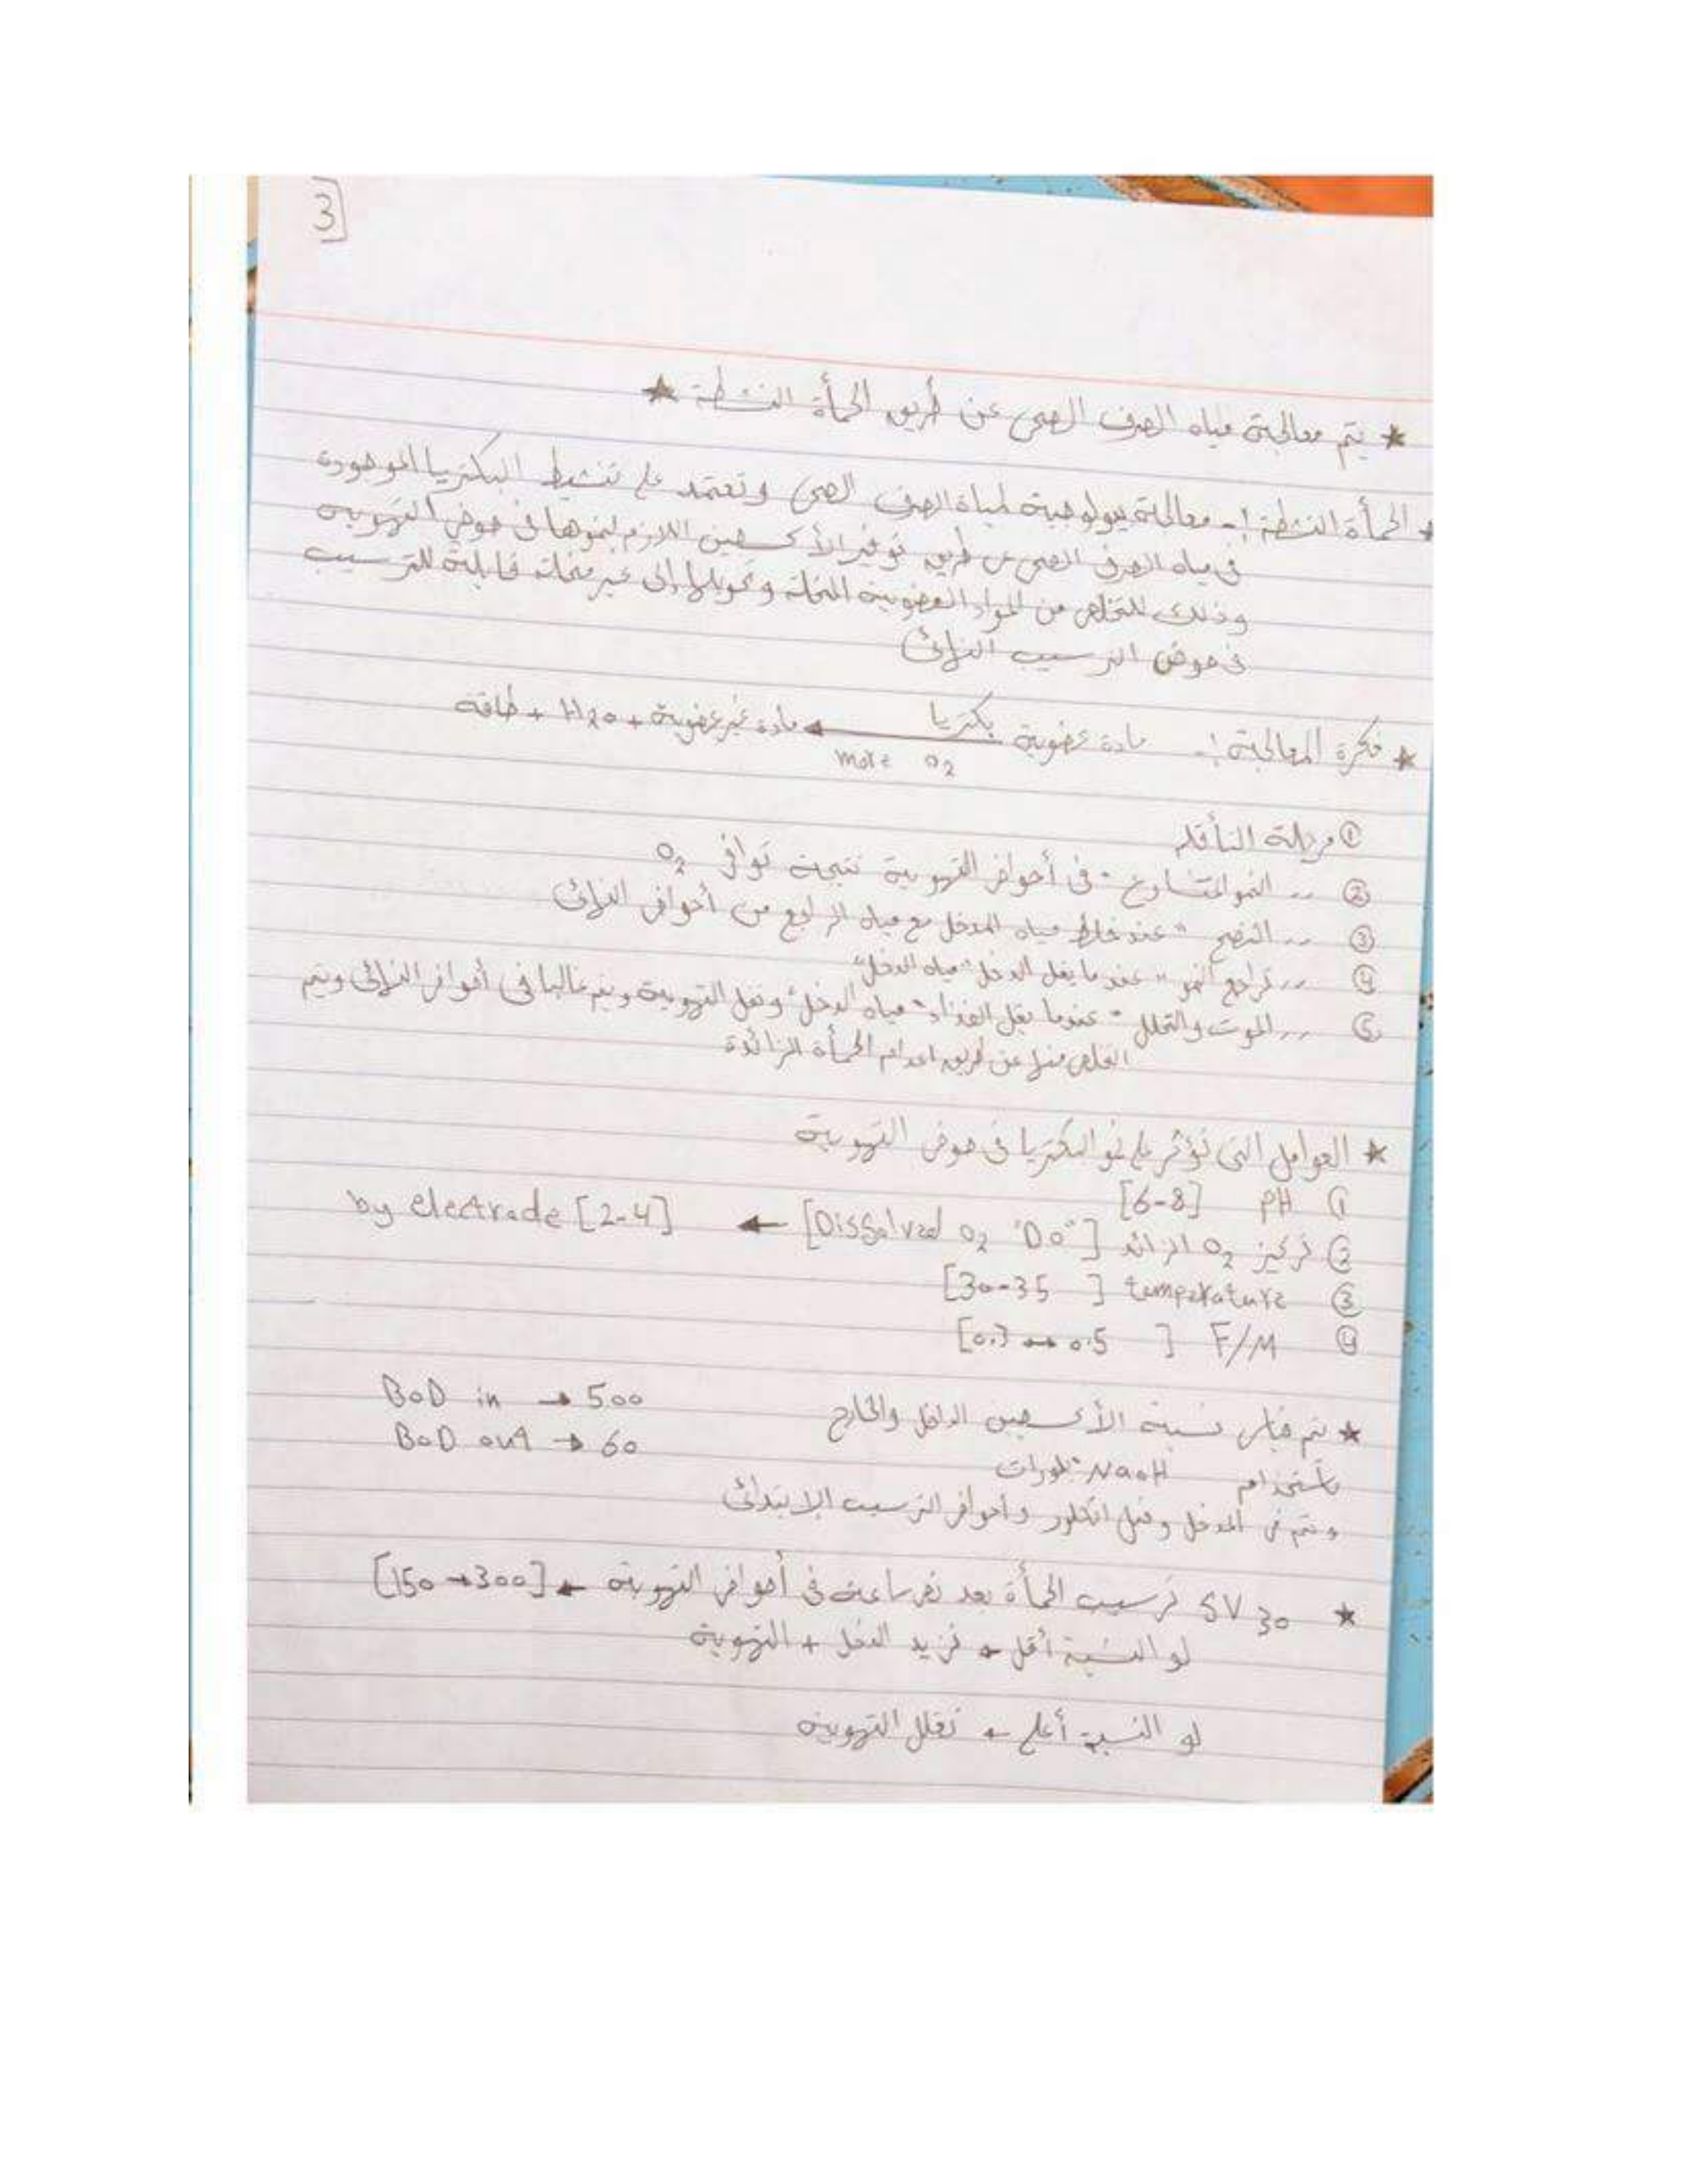 3
★ يتم معالجة مياه الصرف الصحى عن طريق الحمأة النشطة ★
* الحمأة النشطة :- معالجة بيولوجية لمياة الصرف الصحى وتعتمد على تنشيط البكتريا الموجودة
فى مياه الصرف الصحى عن طريق توفير الأكسجين اللازم لنموها فى حوض التهوية
وذلك للتخلص من المواد العضوية العالقة وتحويلها إلى غير عالقة قابلة للترسيب
فى حوض الترسيب النهائى
★ فكرة المعالجة :- مادة عضوية بكتريا ← مادة غير عضوية + H2O + طاقة
more O2
① مرحلة التأقلم
② ,, النمو المتسارع " فى أحواض التهوية نتيجة توافر O2
③ ,, النضج " عند خلط مياه المدخل مع مياه الراجع من أحواض النهائى
④ ,, تراجع النمو " عندما يقل الدخل "مياه الدخل"
⑤ ,, الموت والتحلل " عندما يقل الغذاء "مياه الدخل" وتقل التهوية ويتم غالبا فى أحواض النهائى ويتم
التخلص منها عن طريق اعدام الحمأة الزائدة
★ العوامل التى تؤثر على نمو البكتريا فى حوض التهوية
① PH [6-8]
② تركيز O2 الزائد [Dissolved O2 "DO"] ← by electrode [2-4]
③ temperature [30-35 ]
④ F/M [0.3 → 0.5 ]
★ يتم قياس نسبة الأكسجين الداخل والخارج BOD in → 500
باستخدام NaOH "بلورات" BOD out → 60
ويتم فى المدخل وقبل الكلور وأحواض الترسيب الابتدائى
★ SV 30 ترسيب الحمأة بعد نص ساعة فى أحواض التهوية ← [150 → 300]
لو النسبة أقل ← نزيد الدخل + التهوية
لو النسبة أعلى ← نقلل التهوية